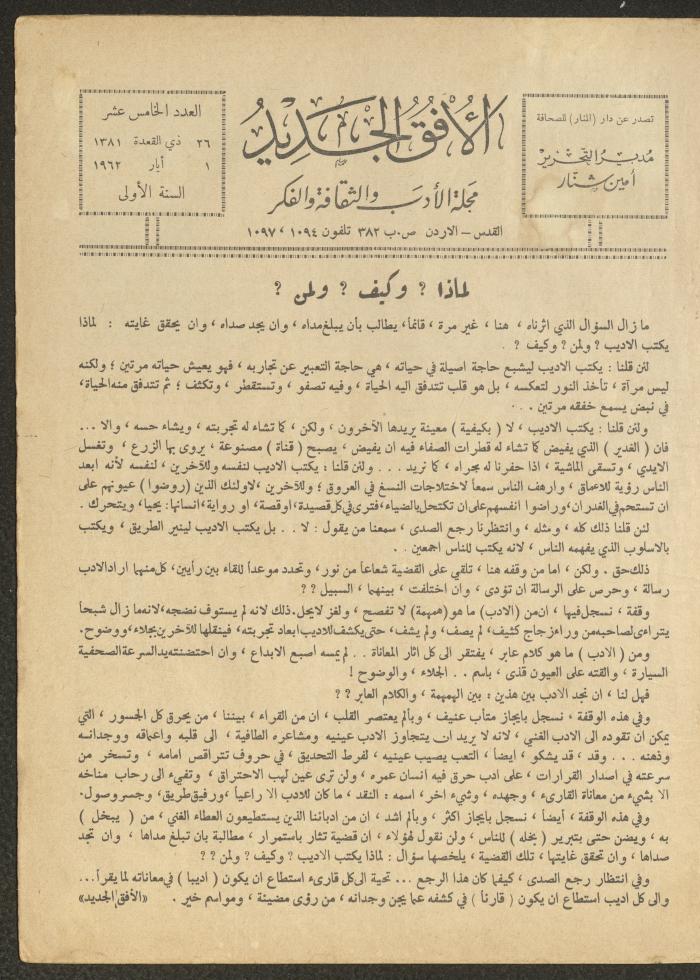 العدد الخامس عشر
٢٦ ذي القعدة ١٣٨١
١ أيار ١٩٦٢
السنة الأولى
الأفق الجديد
مجلة الأدب والثقافة والفكر
القدس – الاردن ص.ب ٣٨٢ تلفون ١٠٩٤ ، ١٠٩٧
تصدر عن دار (المنار) للصحافة
مدير التحرير
أمين شنار
لماذا ؟ وكيف ؟ ولمن ؟
ما زال السؤال الذي اثرناه ، هنا ، غير مرة ، قائماً، يطالب بأن يبلغ مداه ، وان يجد صداه ، وان يحقق غايته : لماذا
يكتب الاديب ؟ ولمن ؟ وكيف ؟ .
لئن قلنا : يكتب الاديب ليشبع حاجة اصيلة في حياته ، هي حاجة التعبير عن تجاربه ، فهو يعيش حياته مرتين ؛ ولكنه
ليس مرآة ، تأخذ النور لتعكسه ، بل هو قلب تتدفق اليه الحياة ، وفيه تصفو ، وتستقطر ، وتكثف ؛ ثم تتدفق منه الحياة،
في نبض يسمع خفقه مرتين . .
ولئن قلنا : يكتب الاديب ، لا ( بكيفية ) معينة يريدها الآخرون ، ولكن ، كما تشاء له تجربته ، ويشاء حسه ، والا ...
فان ( الغدير ) الذي يفيض كما تشاء له قطرات الصفاء فيه ان يفيض ، يصبح ( قناة ) مصنوعة ، يروى بها الزرع ، وتغسل
الايدي ، وتسقى الماشية ، اذا حفرنا له مجراه ، كما نريد . . . ولئن قلنا : يكتب الاديب لنفسه وللآخرين ، لنفسه لأنه ابعد
الناس رؤية للاعماق ، وارهف الناس سمعاً لاختلاجات النسغ في العروق ؛ وللآخرين ،لاولئك الذين (روضوا ) عيونهم على
ان تستحم في الغدران،وراضوا انفسهم على ان تكتحل بالضياء، فترى في كل قصيدة،اوقصة، او رواية،انسانها: يحيا، ويتحرك .
لئن قلنا ذلك كله ، ومثله ، وانتظرنا رجع الصدى ، سمعنا من يقول : لا . . بل يكتب الاديب لينير الطريق ، ويكتب
بالاسلوب الذي يفهمه الناس ، لانه يكتب للناس اجمعين . .
ذلك حق . ولكن ، اما من وقفه هنا ، تلقي على القضية شعاعاً من نور ، وتحدد موعداً للقاء بين رأيين، كل منهما اراد الادب
رسالة ، وحرص على الرسالة ان تؤدى ، وان اختلفت ، بينهما ، السبيل ؟ ؟
وقفة ، نسجل فيها ، ان من (الادب) ما هو (همهمة) لا تفصح ، ولغز لا يحل.ذلك لانه لم يستوف نضجه،لانه ما زال شبحاً
يتراءى لصاحبه من وراء زجاج كثيف، لم يصف، ولم يشف، حتى يكشف للاديب ابعاد تجربته، فينقلها للآخرين بجلاء،ووضوح.
ومن ( الادب ) ما هو كلام عابر ، يفتقر الى كل اثار المعاناة . . لم يمسه اصبع الابداع ، وان احتضنته يد السرعة الصحفية
السيارة ، والقته على العيون قذى ، باسم . . الجلاء ، والوضوح !
فهل لنا ، ان نجد الادب بين هذين : بين الهمهمة ، والكلام العابر ؟ ؟
وفي هذه الوقفة ، نسجل بايجاز متأب عنيف ، وبألم يعتصر القلب ، ان من القراء ، بيننا ، من يحرق كل الجسور ، التي
يمكن ان تقوده الى الادب الغني ، لانه لا يريد ان يتجاوز الادب عينيه ومشاعره الطافية ، الى قلبه واعماقه ووجدانه
وذهنه ... وقد ، قد يشكو ، ايضاً ، التعب يصيب عينيه ، لفرط التحديق ، في حروف تتراقص امامه ، وتسخر من
سرعته في اصدار القرارات ، على ادب حرق فيه انسان عمره ، ولن ترى عين لهب الاحتراق ، وتفيء الى رحاب مناخه
الا بشيء من معاناة القارىء ، وجهده ، وشيء اخر ، اسمه : النقد ، ما كان للادب الا راعياً ،ورفيق طريق، وجسر وصول.
وفي هذه الوقفة ، أيضاً ، نسجل بايجاز اكثر ، وبألم اشد ، ان من ادبائنا الذين يستطيعون العطاء الغني ، من ( يبخل )
به ، ويضن حتى بتبرير ( بخله ) للناس ، ولن نقول لهؤلاء ، ان قضية تثار باستمرار ، مطالبة بان تبلغ مداها ، وان تجد
صداها ، وان تحقق غايتها ، تلك القضية ، يلخصها سؤال : لماذا يكتب الاديب ؟ وكيف ؟ ولمن ؟ ؟
وفي انتظار رجع الصدى ، كيفما كان هذا الرجع ... تحية الى كل قارىء استطاع ان يكون ( اديبا ) في معاناته لما يقرأ...
والى كل اديب استطاع ان يكون ( قارئاً ) في كشفه عما يجن وجدانه ، من رؤى مضيئة ، ومواسم خير . «الأفق الجديد»